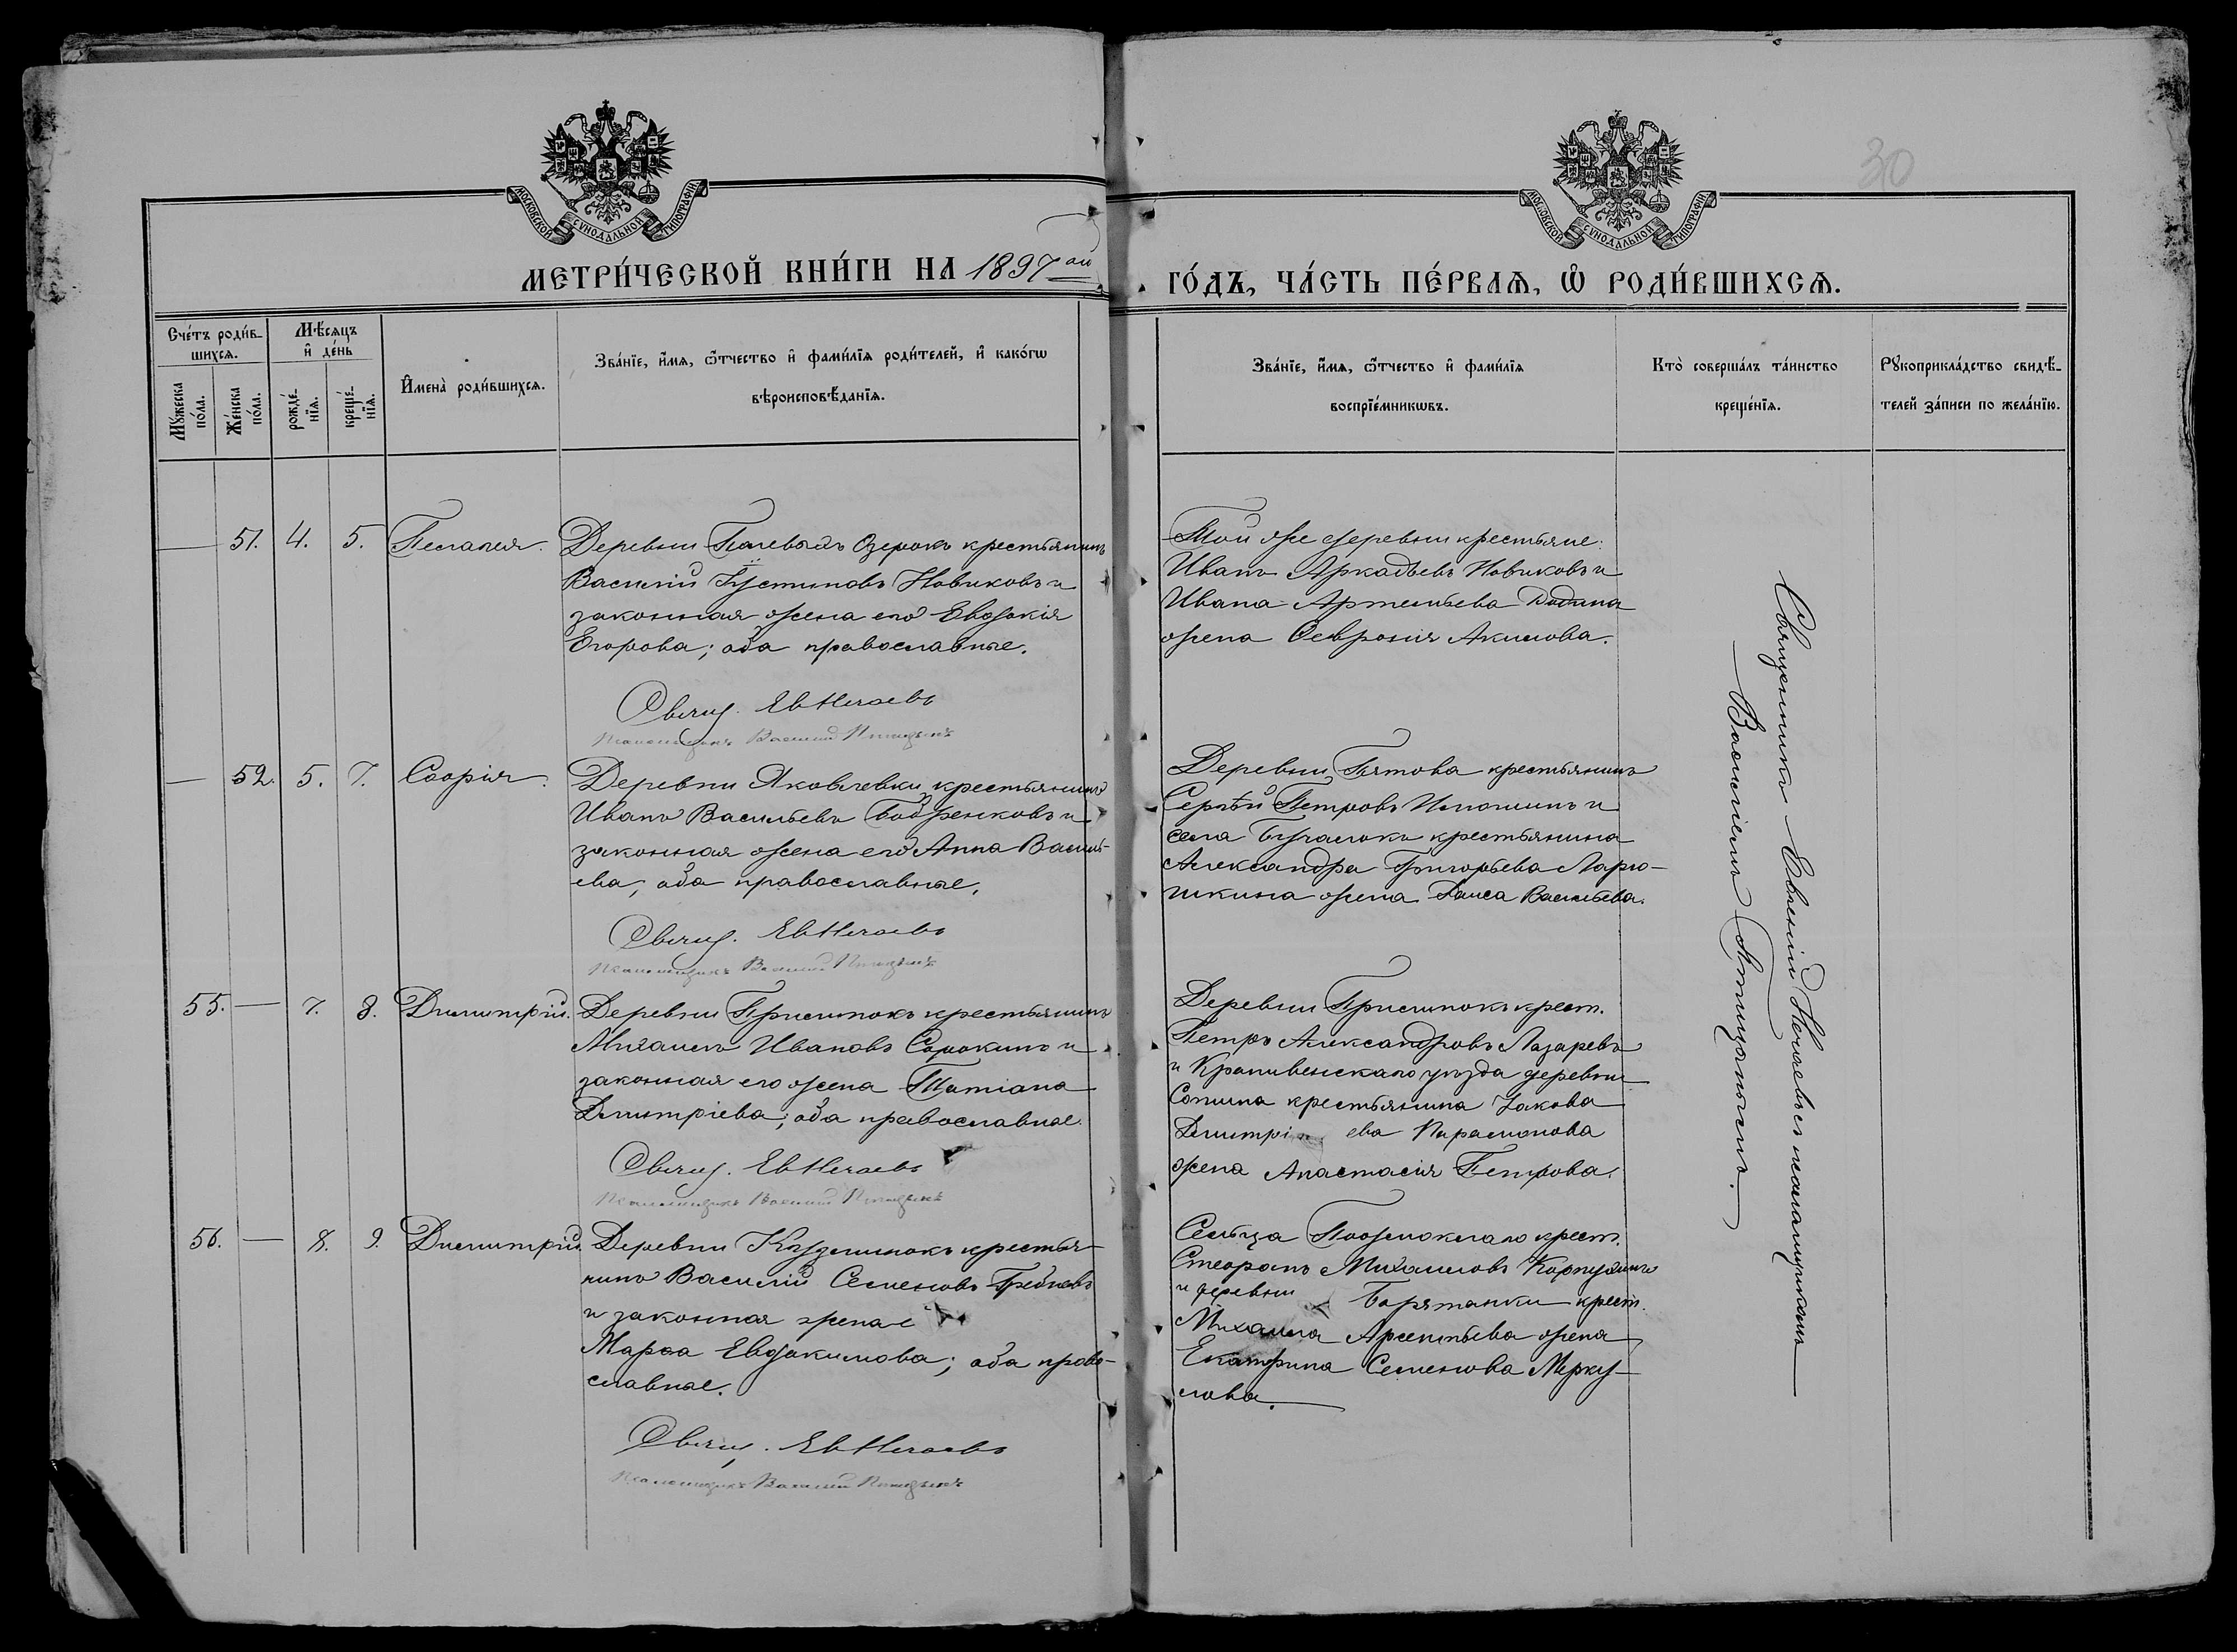 30
МОСКОВСКОЙ СУНОДАЛЬНОЙ ТИПОГРАФІИ
МОСКОВСКОЙ СУНОДАЛЬНОЙ ТИПОГРАФІИ
МЕТРИ́ЧЕСКОЙ КНИ́ГИ НА 1897 ой
ГО́ДЪ, ЧА́СТЬ ПЕ́РВАѦ, Ѡ҆ РОДИ́ВШИХСѦ.
Сче́тъ роди́в-
шихсѧ.
Мꙋ́жеска
по́ла.
Же́нска
по́ла.
Мѣ́сѧцъ
и҆ де́нь
рожде́-
нїѧ.
креще́-
нїѧ.
И҆мена̀ роди́вшихсѧ.
Зва́нїе, и҆́мѧ, ѻ҆́тчество и҆ фами́лїѧ роди́телей, и҆ како́гѡ
вѣроисповѣ́данїѧ.
Зва́нїе, и҆́мѧ, ѻ҆́тчество и҆ фами́лїѧ
воспрїе́мникѡвъ.
Кто̀ соверша́лъ та́инство
креще́нїѧ.
Рꙋкоприкла́дство свидѣ́-
телей за́писи по жела́нїю.
51. 4. 5. Пелагея.
Деревни Полевыхъ Озерокъ крестьянинъ
Василій Іустиновъ Новиковъ и
законная жена его Евдокія
Егорова; оба православные.
Свящ. Ев Нечаевъ
Псаломщикъ Василий Птицынъ
Той же деревни крестьяне:
Иванъ Аркадьевъ Новиковъ и
Ивана Артемьева
жена Февронія Акимова.
52. 5. 7. Софія.
Деревни Яковлевки крестьянинъ
Иванъ Васильевъ Бобренковъ и
законная жена его Анна Василь-
ева; оба православные.
Свящ. Ев Нечаевъ
Псаломщикъ Василий Птицынъ
Деревни Пятова крестьянинъ
Сергѣй Петровъ Илюшинъ и
села крестьянина
Александра Григорьева Ларю-
шкина жена Раиса Васильева.
55. 7. 8. Димитрій.
Деревни Присштокъ крестьянинъ
Михаилъ Ивановъ Сорокинъ и
законная его жена Татіана
Дмитріева; оба православные.
Свящ. Ев Нечаевъ
Псаломщикъ Василий Птицынъ
Деревни крест.
Петръ Александровъ Лазаревъ
и Крапивенскаго уѣзда деревни
крестьянина Іакова
Дмитріева Парамонова
жена Анастасія Петрова.
56. 8. 9. Димитрій.
Деревни крестья-
нинъ Василій Семеновъ Гребневъ
и законная жена е
Марѳа Евдокимова; оба право-
славные.
Свящ. Ев Нечаевъ
Псаломщикъ Василий Птицынъ
Сельца крест.
Стефанъ Михаиловъ Карпухинъ
и деревни Борятинки крест.
Михаила Арсентьева жена
Екатерина Семенова Мерку-
лова.
Священникъ Евгеній Нечаевъ съ псаломщикомъ
Василіемъ Птицынымъ.